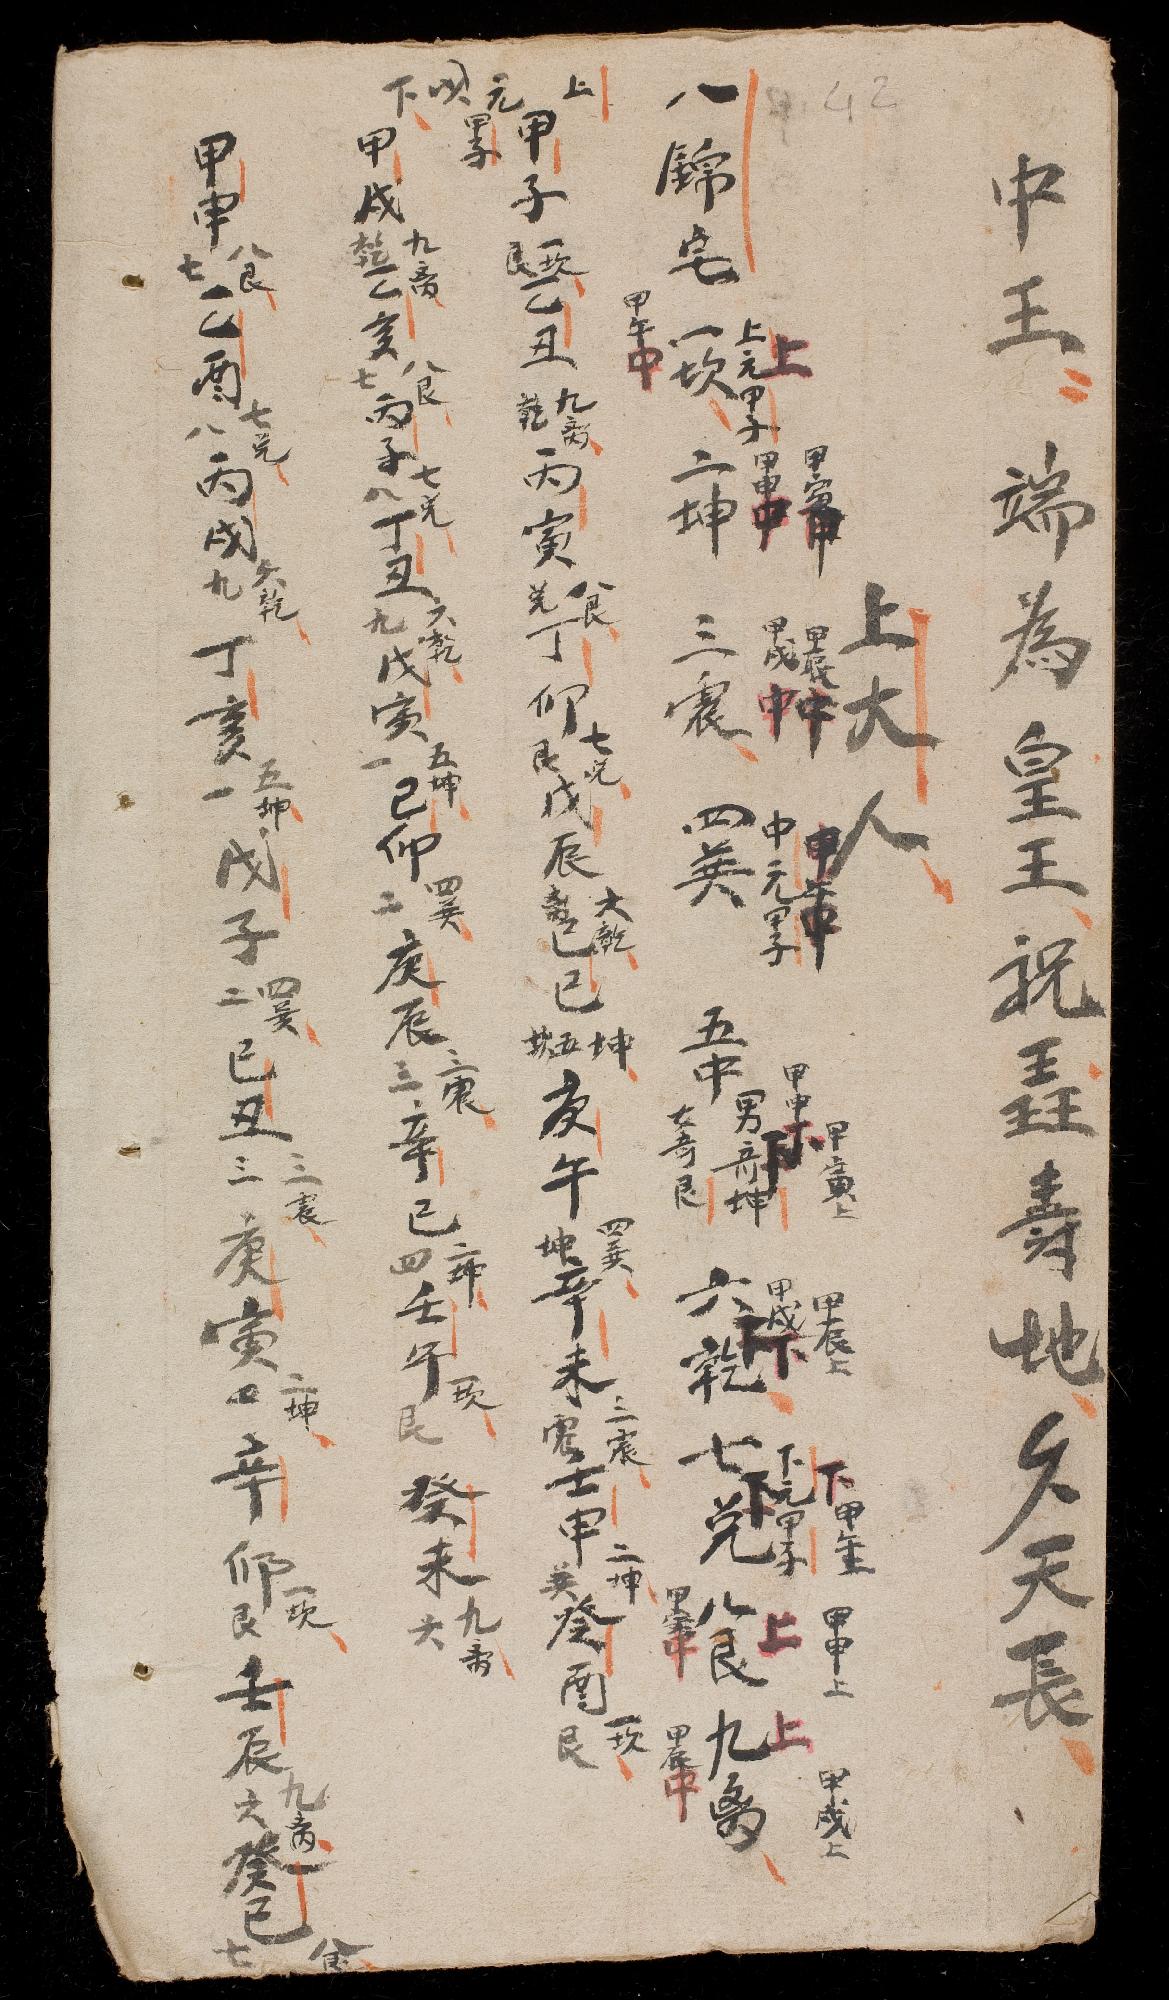 42
中王:端為皇王祝壽地久天長
上大人
甲寅中 甲辰中 甲午中 甲寅上 甲辰上 下甲午上 甲申上 甲戌上
上 上元甲子 甲申中 甲戌中 中元甲子 甲申下 甲戌下 下元甲子 上 上
八錦宅一坎二坤三震四巽五中 男奇坤 女奇艮 六乾七兌八艮九离
甲午中 甲辰中
上元甲子
甲子 一坎 艮 乙丑 九离 乾 丙寅 八艮 兌 丁卯 七兌 艮 戊辰 六乾 离 己巳 五坤 坎 庚午 四巽 坤 辛未 三震 震 壬申 二坤 巽 癸酉 一坎 艮
下
甲戌 九离 乾 乙亥 八艮 七 丙子 七兌 八 丁丑 六乾 九 戊寅 五坤 一 己卯 四巽 二 庚辰 三震 三 辛巳 二坤 四 壬午 一坎 艮 癸未 九离 六
甲申 八艮 七 乙酉 七兌 八 丙戌 六乾 九 丁亥 五坤 一 戊子 四巽 二 己丑 三震 三 庚寅 二坤 四 辛卯 一坎 艮 壬辰 九离 六 癸巳 八艮 七